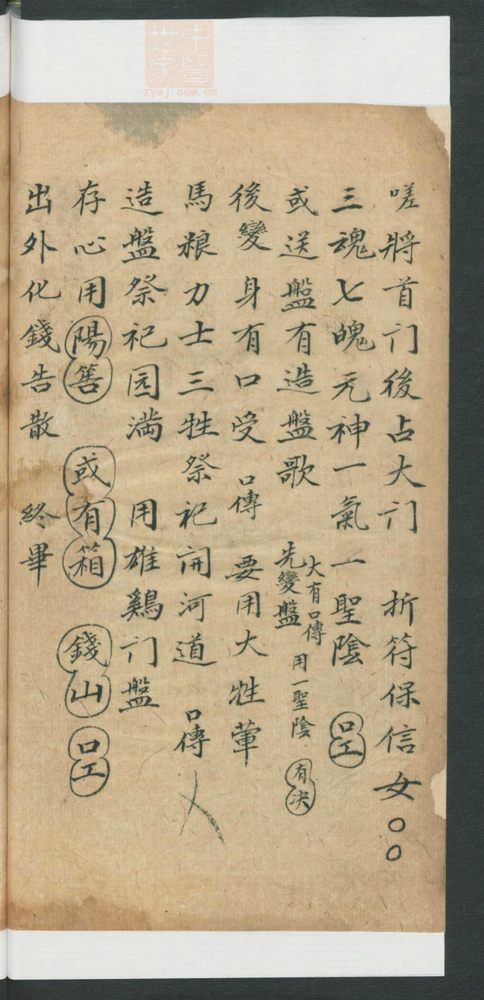 嗟將首门後占大门 折符保信女○○
三魂七魄元神一氣一聖陰 口工
或送盤有造盤歌 先變盤 大有口傳 用一聖陰 有决
後變身有口受 口傳 要用大牲葷
馬粮力士三牲祭祀開河道 口傳
造盤祭祀园满 用雄鷄门盤
存心用陽善 或有箱 錢山 口工
出外化錢告散 終畢
中醫世家
-zysj.com.cn